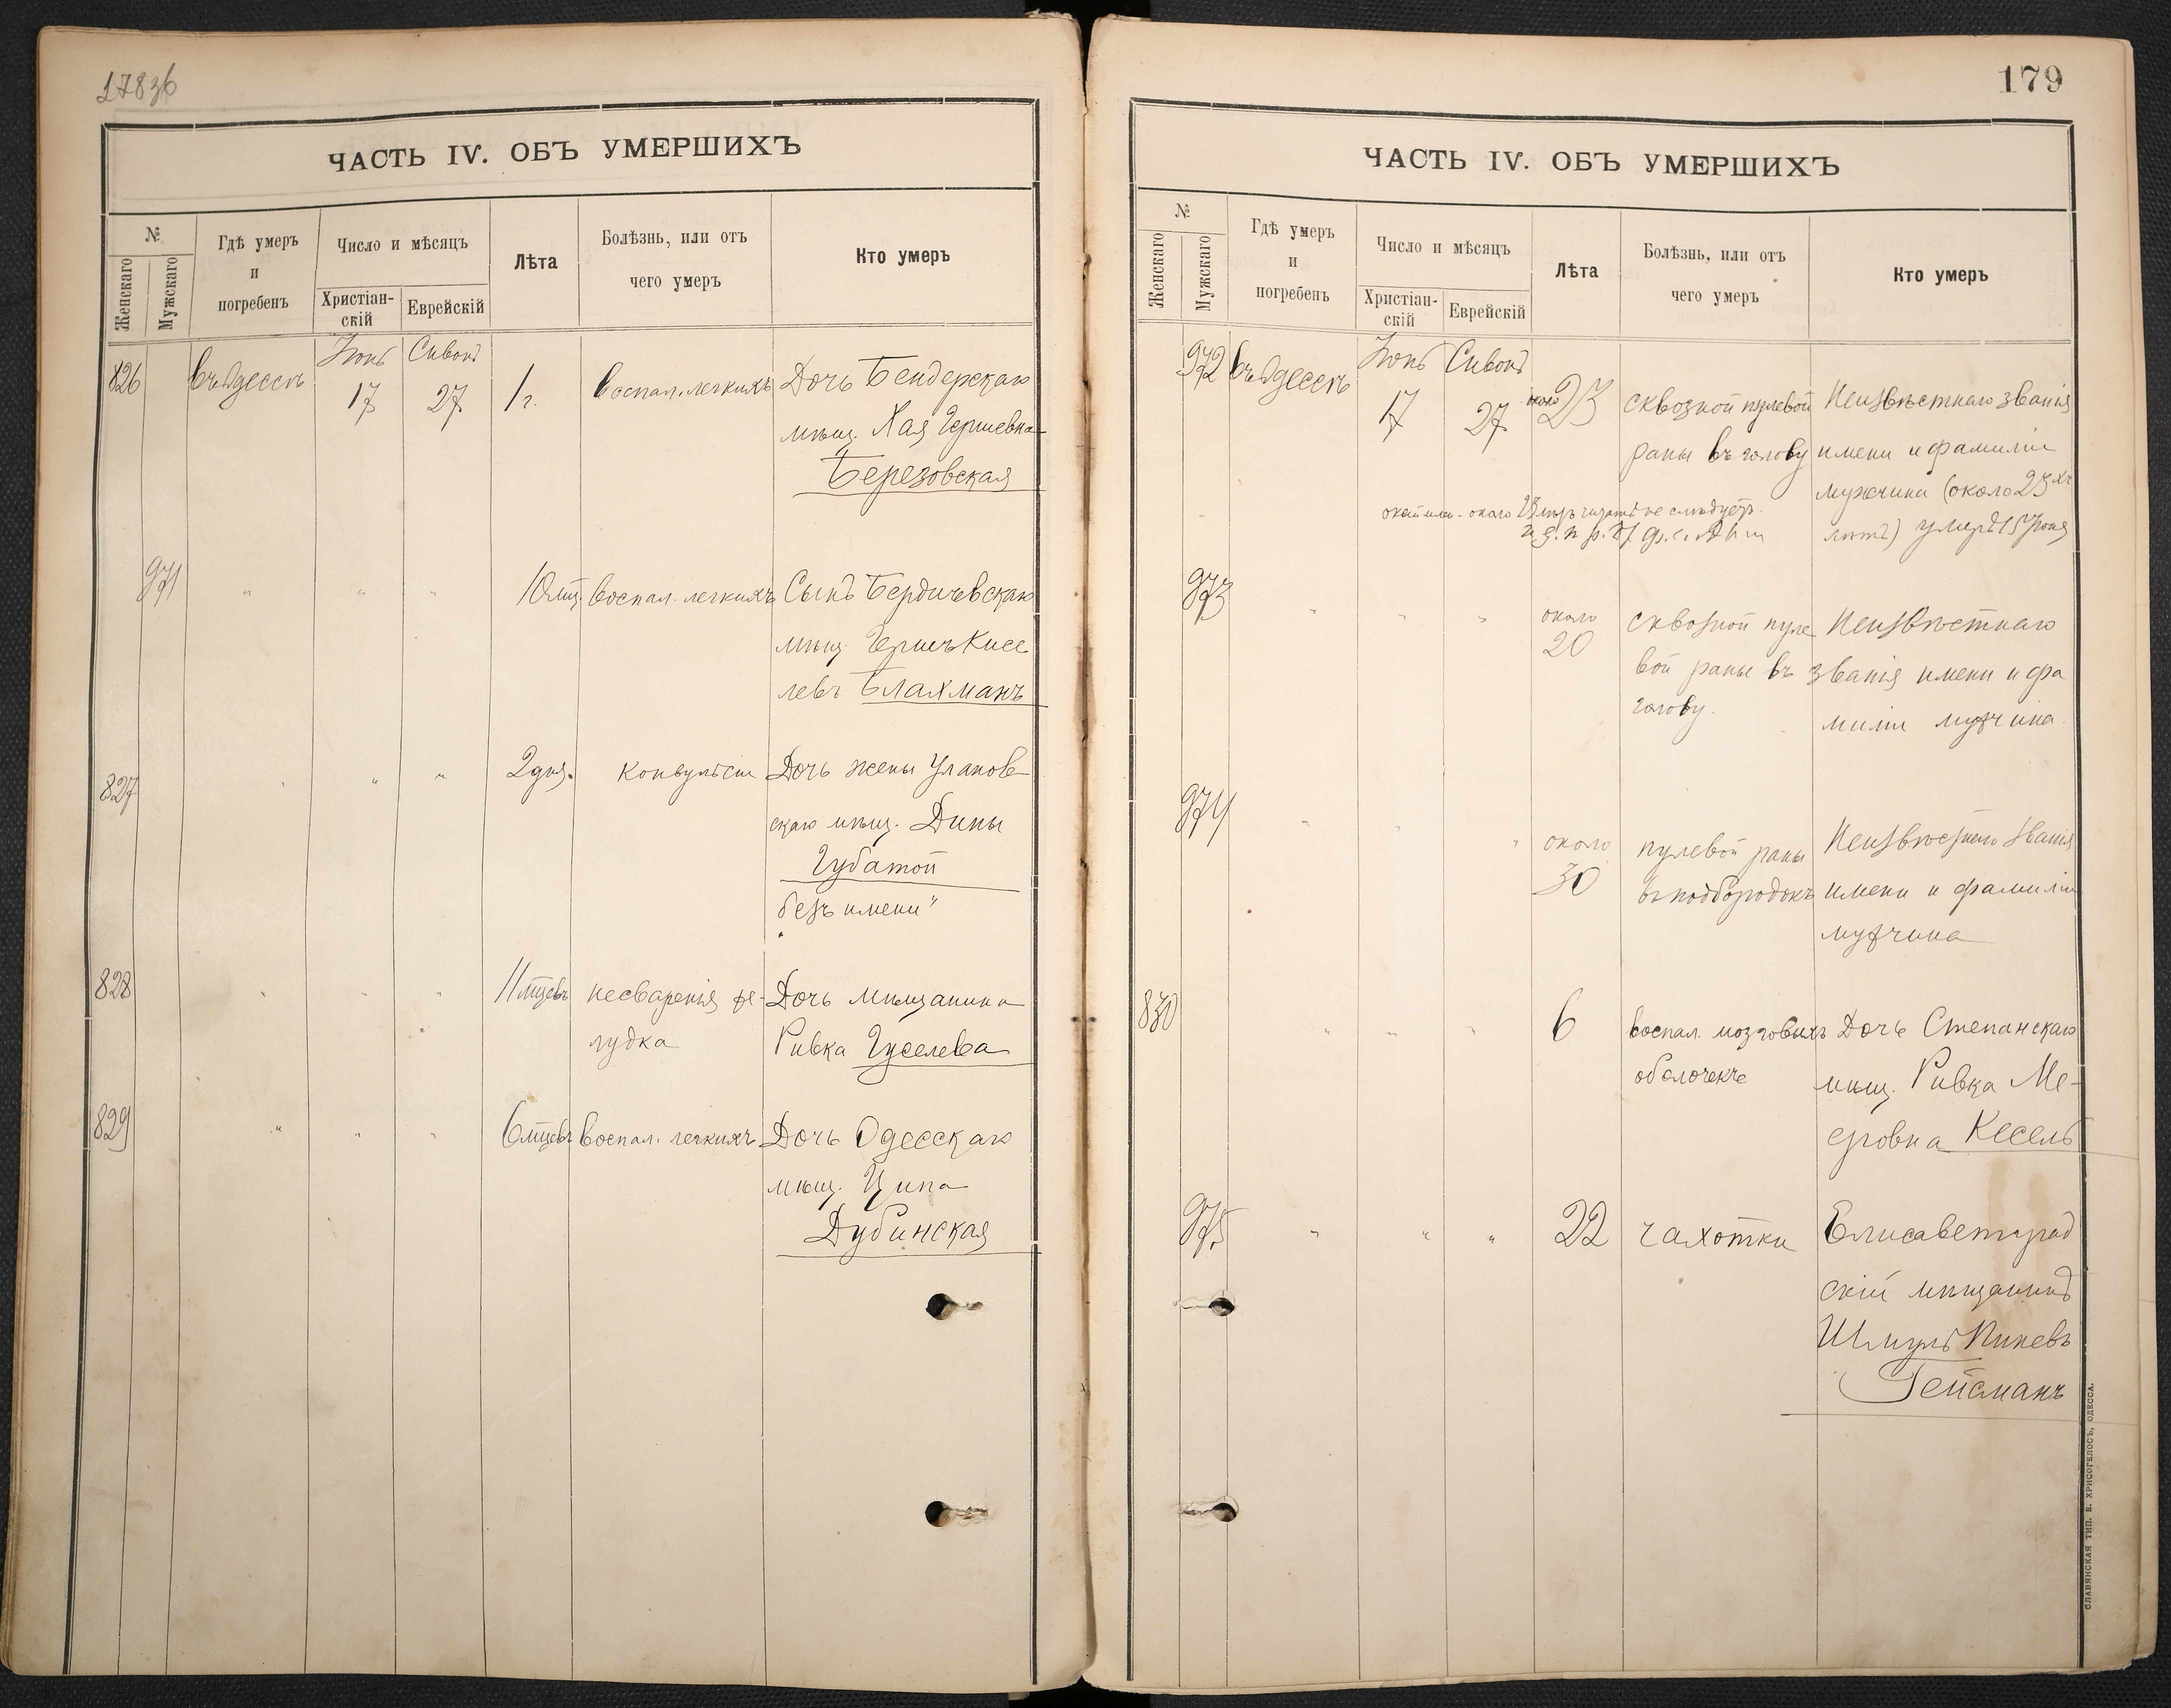 17836
ЧАСТЬ IV. ОБЪ УМЕРШИХЪ
№
Женскаго
Мужскаго
Гдѣ умеръ
и
погребенъ
Число и мѣсяцъ
Христіан-
скій
Еврейскій
Лѣта
Болѣзнь, или отъ
чего умеръ
Кто умеръ
Іюнь Сивонъ
826 въ Одессѣ 17 27 1 г. воспал. легкихъ Дочь Бендерскаго
мѣщ. Хая Гершевна
Березовская
971 " " " 10 мц. воспал. легкихъ Сынъ Бердичевскаго
мѣщ. Гершъ Кисе
левъ Блахманъ
827 " " " 2 дня. конвульсіи Дочь жены Улановскаго
скаго мѣщ. Дины
Губатой
"безъ имени"
828 " " " 11 мцевъ несваренія же-
лудка
Дочь мѣщанина
Ривка Гуселева
829 " " " 6 мцевъ воспал. легкихъ Дочь Одесскаго
мѣщ. Ципа
Дубинская
179
ЧАСТЬ IV. ОБЪ УМЕРШИХЪ
№
Женскаго
Мужскаго
Гдѣ умеръ
и
погребенъ
Число и мѣсяцъ
Христіан-
скій
Еврейскій
Лѣта
Болѣзнь, или отъ
чего умеръ
Кто умеръ
Іюнь Сивонъ
972 въ Одессѣ 17 27 около 23 сквозной пулевой
раны въ голову
Неизвѣстнаго званія
имени и фамиліи
мужчина (около 23хъ
лѣтъ) умеръ 15 Іюня
около 23 читать не слѣдуетъ
973 " " " около
20
сквозной пуле
вой раны въ
голову.
Неизвѣстнаго
званія имени и фа
миліи мужчина
974 " " " около
30
пулевой раны
въ подбородокъ
Неизвѣстнаго званія
имени и фамиліи
мужчина
830 " " " 6 воспал. мозговыхъ
оболочекъ
Дочь Степанскаго
мѣщ. Ривка Ме-
еровна Кесель
975 " " " 22 чахотки Елисаветград
скій мѣщанинъ
Шмуль Пиневъ
Гейсманъ
СЛАВЯНСКАЯ ТИП. Е. ХРИСОГЕЛОСЪ, ОДЕССА.